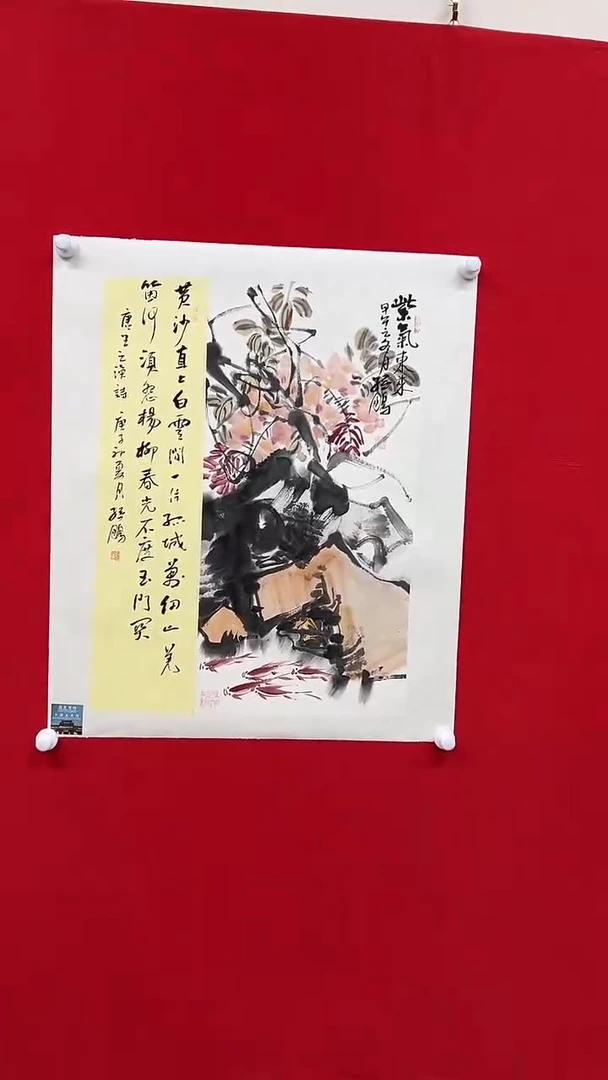 紫氣東来
甲午之冬月鵬
黄沙直上白雲間一片孤城萬仞山羌
笛何須怨楊柳春光不度玉門関
唐王之渙詩 庚子初夏月鵬